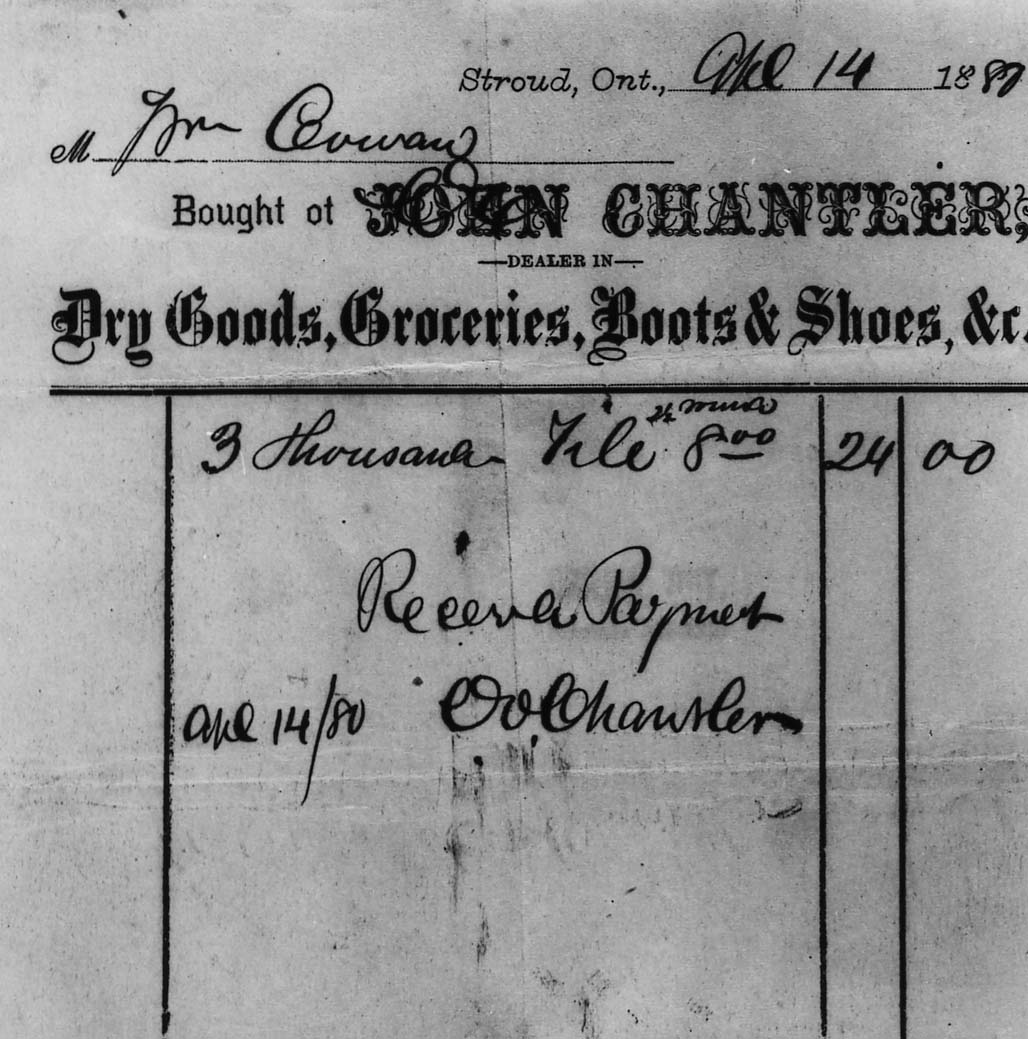 Stroud, Ont., Apl 14 1880
M Wm Cowan
Bought of JOHN CHANTLER,
—DEALER IN—
Dry Goods, Groceries, Boots & Shoes, &c.
2½ inch
3 Thousand Tile 8.00 24 00
Receivd Payment
Apl 14/80 Chantler